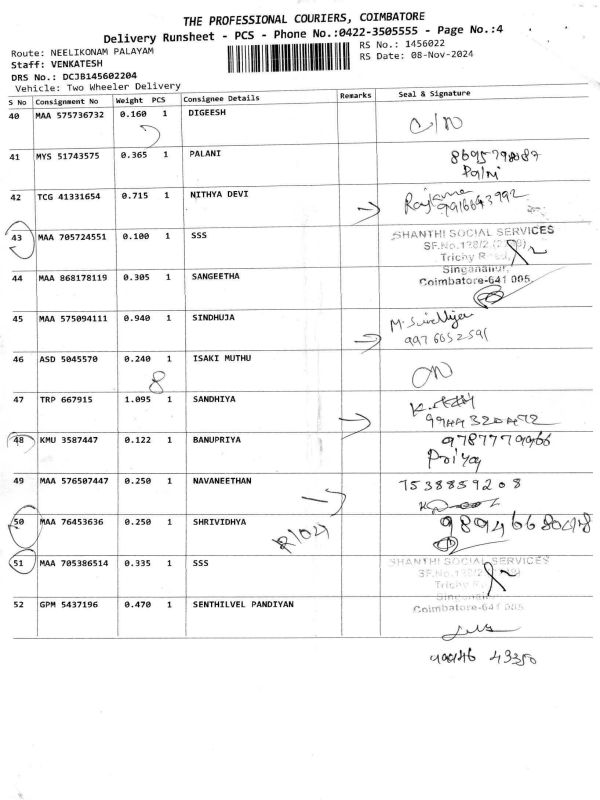 THE PROFESSIONAL COURIERS, COIMBATORE
Delivery Runsheet - PCS - Phone No.:0422-3505555 - Page No.:4
Route: NEELIKONAM PALAYAM
RS No.: 1456022
Staff: VENKATESH
RS Date: 08-Nov-2024
DRS No.: DCJB145602204
Vehicle: Two Wheeler Delivery
S No Consignment No Weight PCS Consignee Details Remarks Seal & Signature
40 MAA 575736732 0.160 1 DIGEESH
41 MYS 51743575 0.365 1 PALANI
8695798087
Palni
42 TCG 41331654 0.715 1 NITHYA DEVI
9916643992
43 MAA 705724551 0.100 1 SSS
SHANTHI SOCIAL SERVICES
Trichy
Singanallur,
Coimbatore-641 005
44 MAA 868178119 0.305 1 SANGEETHA
45 MAA 575094111 0.940 1 SINDHUJA
9976052591
46 ASD 5045570 0.240 1 ISAKI MUTHU
8
47 TRP 667915 1.095 1 SANDHIYA
9944320472
48 KMU 3587447 0.122 1 BANUPRIYA
9787779966
Priya
49 MAA 576507447 0.250 1 NAVANEETHAN
7538859208
50 MAA 76453636 0.250 1 SHRIVIDHYA
51 MAA 705386514 0.335 1 SSS
SHANTHI SOCIAL SERVICES
Trichy
Coimbatore-641 005
52 GPM 5437196 0.470 1 SENTHILVEL PANDIYAN